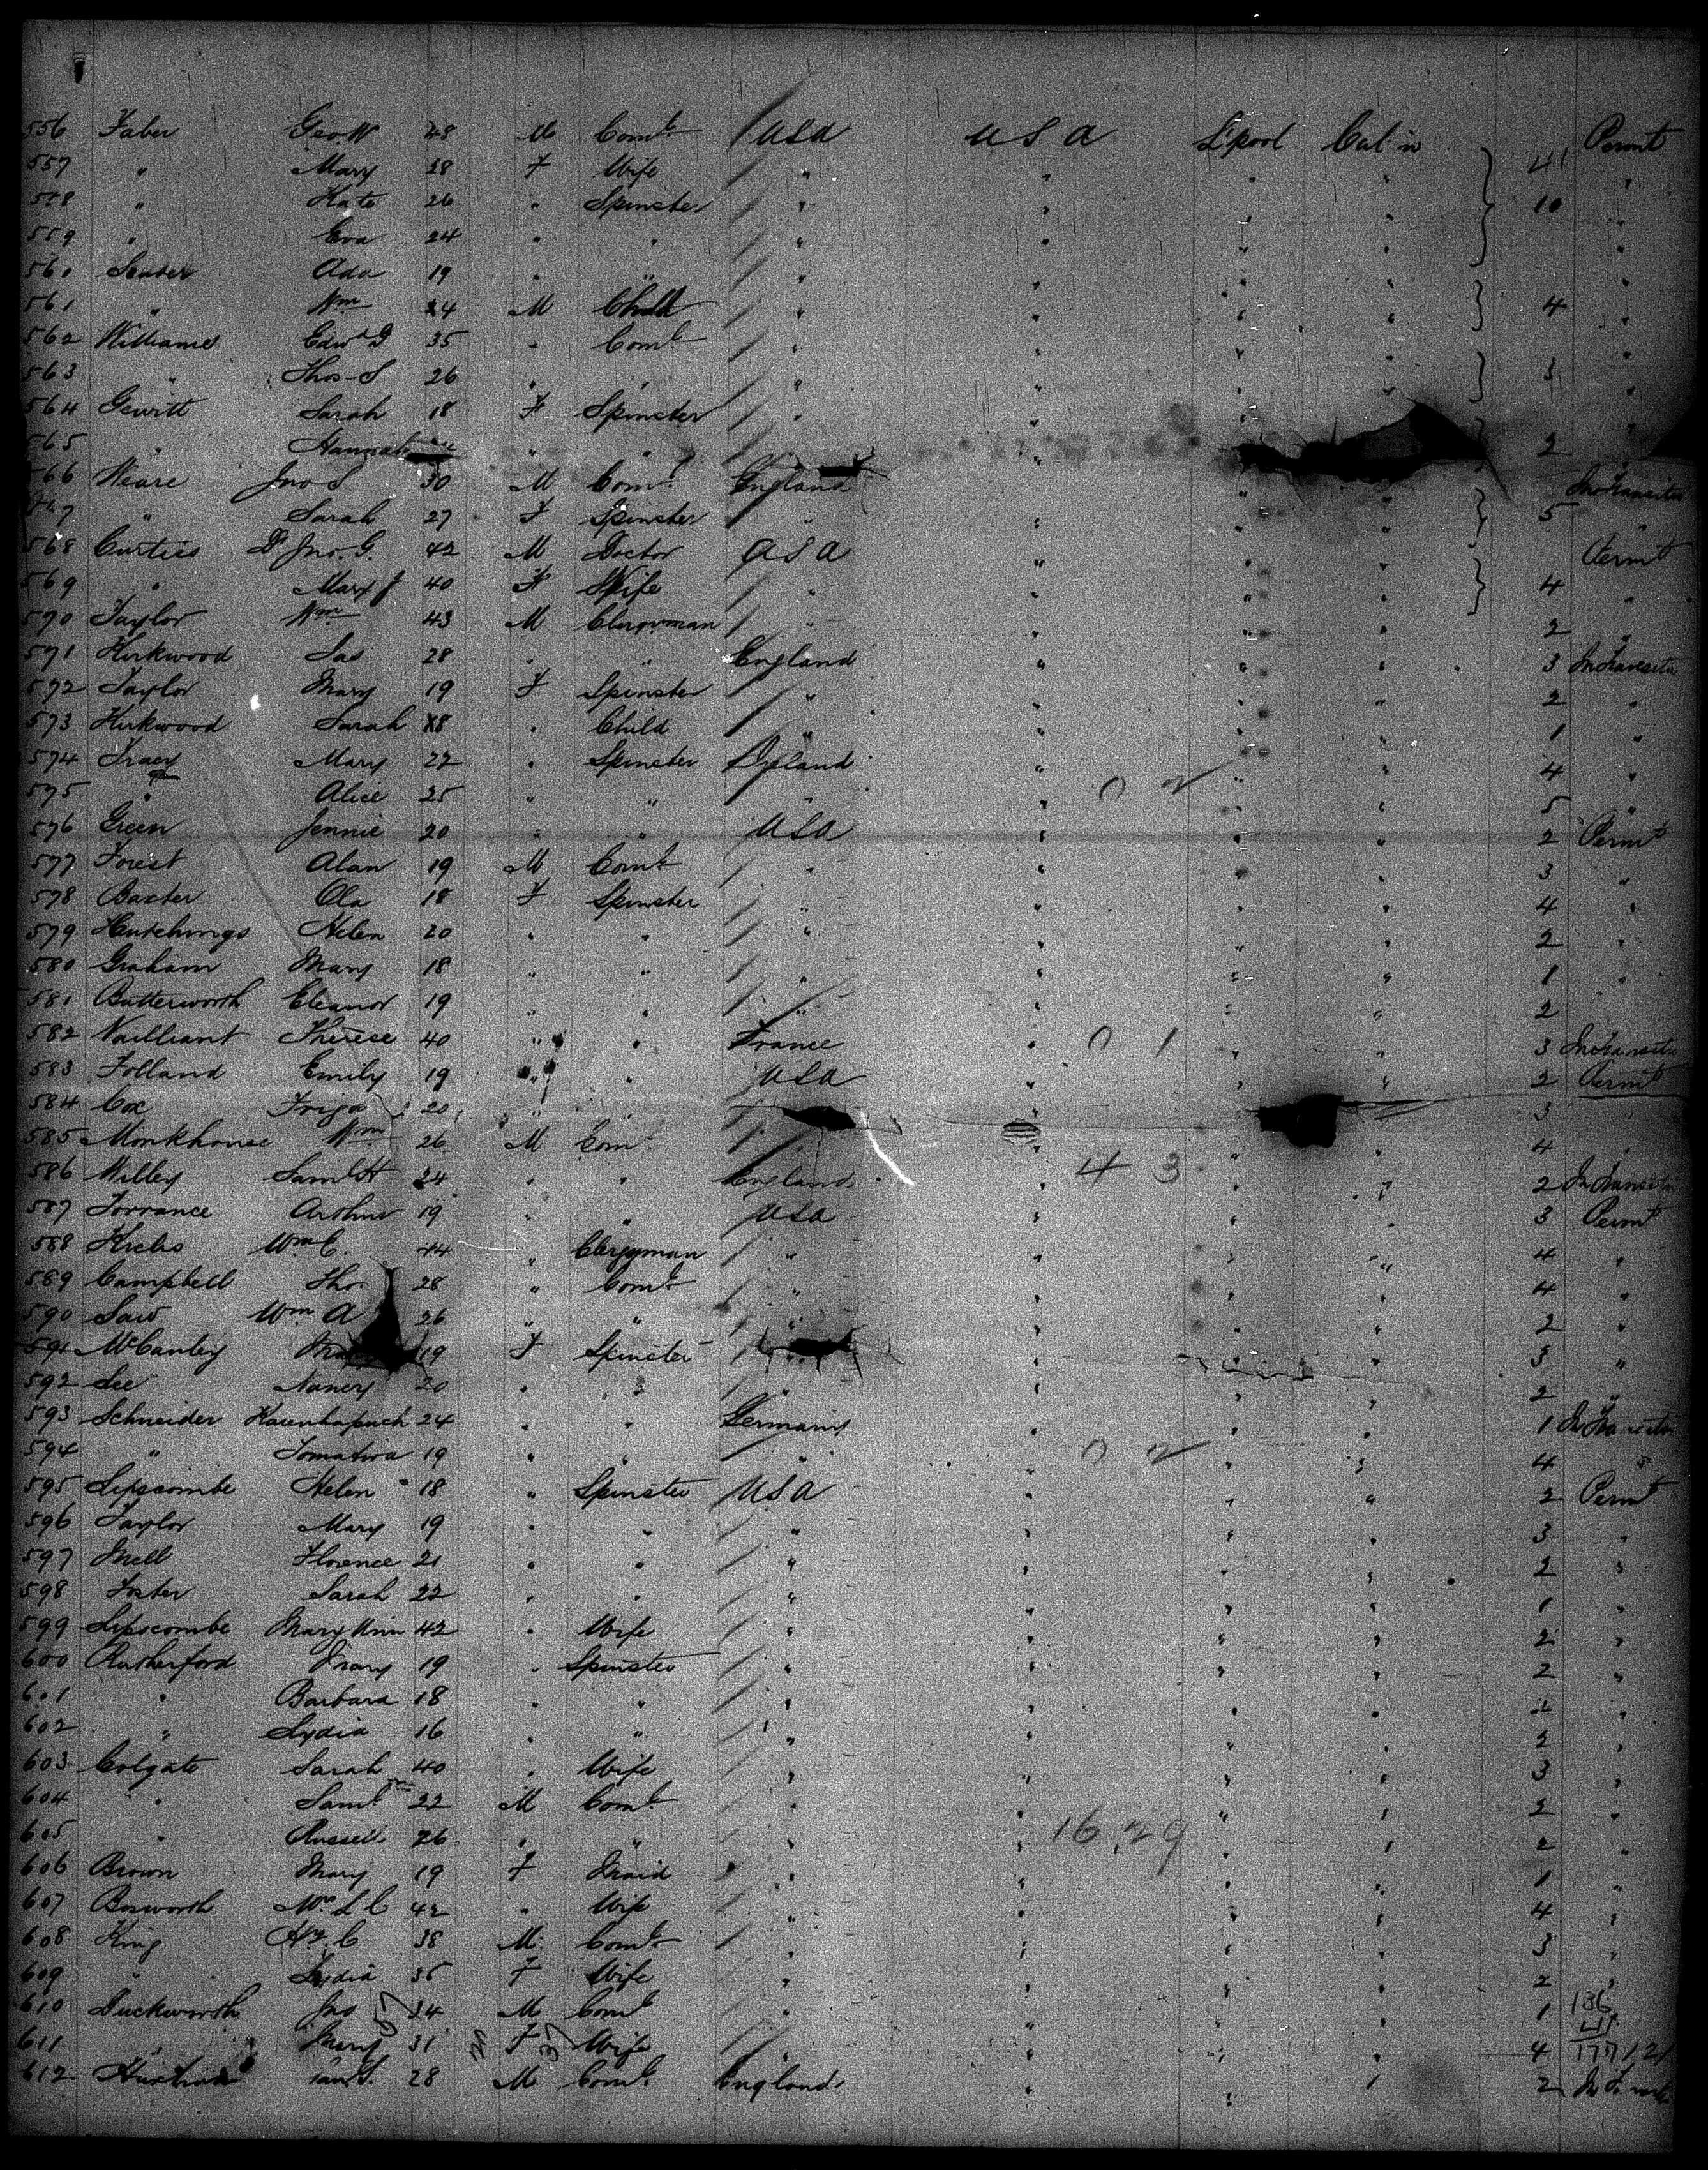 556 Faber Geo. W 48 M Comt USA USA L'pool Cabin Permt
557 " Mary 38 F Wife " " " " 41 "
558 " Kate 26 " Spinster " " " " 10 "
559 " Eva 24 " " " " " " "
560 Ada 19 " " " " " " "
561 " Wm M Child " " " " 4 "
562 Williams Edwd G 35 " Comt " " " " "
563 " Thos S 26 " " " " " " 3 "
564 Gewitt Sarah 18 F Spinster " " " " "
565 " Hannah " " " " 2 "
566 Weare Jno S 30 M Comt England " " " In Transitu
567 " Sarah 27 F Spinster " " " " 5 "
568 Curtiss Dr Jno. G. 42 M Doctor USA " " " Permt
569 " Mary J 40 F Wife " " " " 4 "
590 Taylor Wm 43 M Clergyman " " " " 2 "
591 Kirkwood Jas 28 " " England " " " 3 In Transitu
592 Taylor Mary 19 F Spinster " " " " 2 "
573 Kirkwood Sarah 8 " Child " " " " 1 "
574 Tracy Mary 22 " Spinster Ireland " " " 4 "
575 " Alice 25 " " " " 0 2 " " 5 "
576 Green Jennie 20 " " USA " " " 2 Permt
577 Forest Alan 19 M Comt " " " " 3 "
578 Baxter Ola 18 F Spinster " " " " 4 "
579 Hutchings Helen 20 " " " " " " 2 "
580 Graham Mary 18 " " " " " " 1 "
581 Butterworth Eleanor 19 " " " " " " 2
582 Vailliant Thérèse 40 " " France " 0 1 " " 3 In Transitu
583 Folland Emily 19 " " USA " " " 2 Permt
584 Cox 20 " " " 3 "
585 Monkhouse Wm 26 M Comt " " " 4 "
586 Willey Saml H 24 " " England " 4 3 " " 2 In Transitu
587 Torrance Arthur 19 " " USA " " " 3 Permt
588 Krebs Wm C. 44 " Clergyman " " " " 4 "
589 Campbell Tho. 28 " Comt " " " " 4 "
590 Wm A 26 " " " " " " 2 "
591 McCanley 19 F Spinster " " " " 3 "
592 Lee Nancy 20 " " " " " " 2 "
593 Schneider 24 " " Germany " " " 1 In Transitu
594 " 19 " " " " 0 2 " " 4 "
595 Lipscombe Helen 18 " Spinster USA " " " 2 Permt
596 Taylor Mary 19 " " " " " " 3 "
597 Snell Florence 21 " " " " " " 2 "
598 Foster Sarah 22 " " " " " " 1 "
599 Lipscombe Mary Ann 42 " Wife " " " " 2 "
600 Rutherford Mary 19 " Spinster " " " " 2 "
601 " Barbara 18 " " " " " " 2 "
602 " Lydia 16 " " " " " " 2 "
603 Colgate Sarah 40 " Wife " " " " 3 "
604 " Saml 22 M Comt " " " " 2 "
605 " Russell 26 " " " " 16,29 " " 2 "
606 Brown Mary 19 F Maid " " " " 1 "
607 Bosworth Mrs L C 42 " Wife " " " " 4 "
608 King Hy. C 38 M Comt " " " " 3 "
609 " Lydia 35 F Wife " " " " 2 "
610 Duckworth Jno 34 M Comt " " " " 1 136
41
611 " Mary 31 F Wife " " " " 4 177/21
612 28 M Comt England " " " 2